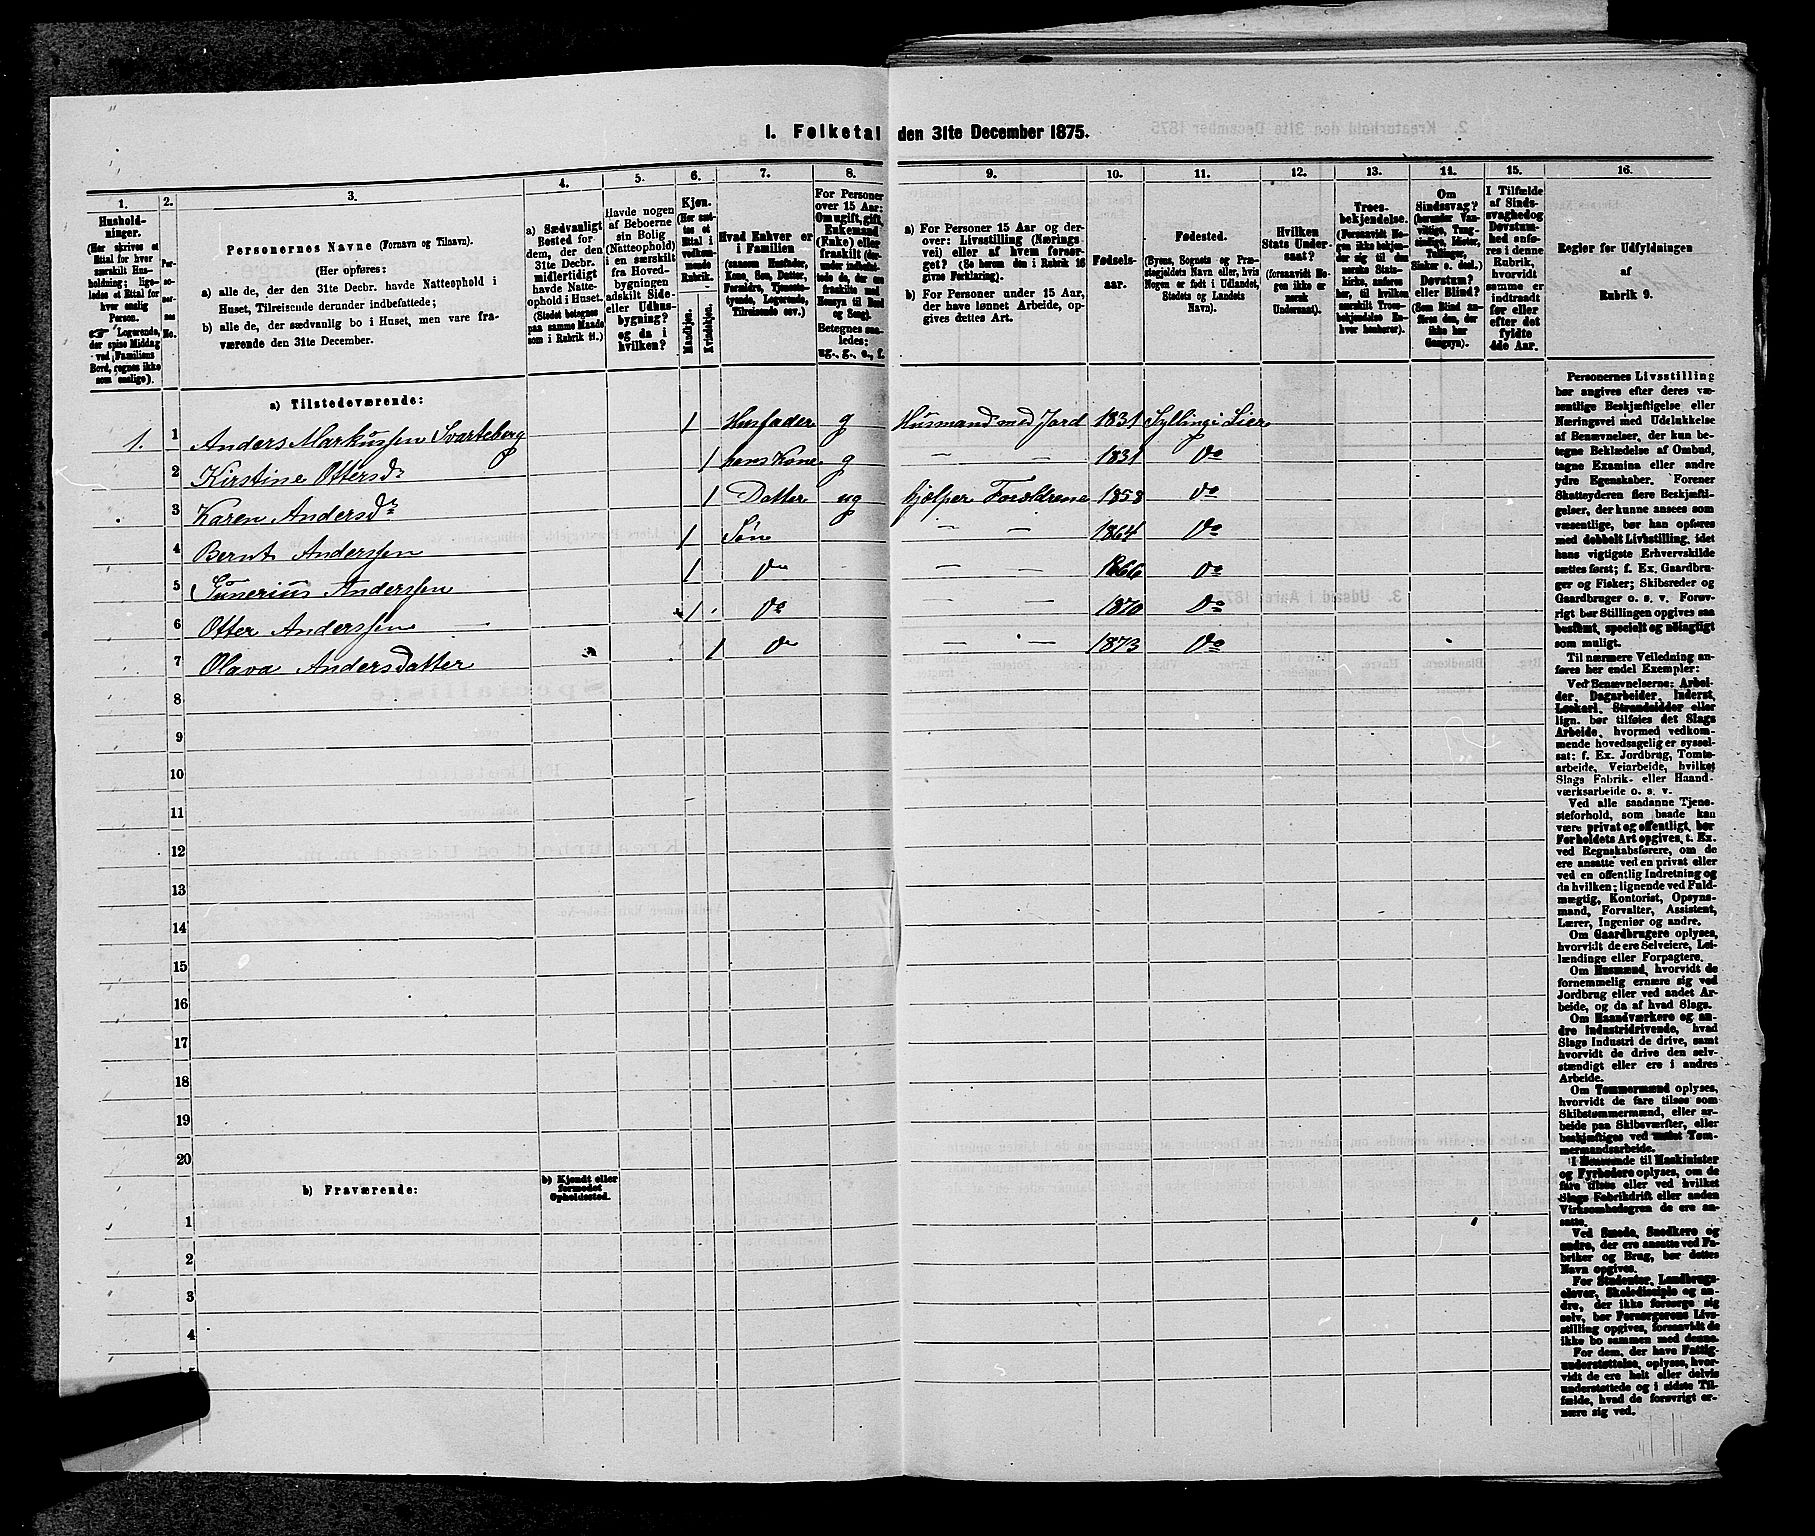 I. Folketal den 31te December 1875.
1.
Hushold-
ninger.
(Her skrives et
Ettal for hver
særskilt Hus-
holdning; lige-
ledes et Ettal for
hver enslig
Person.
☞ Logerende,
der spise Middag
ved Familiens
Bord, regnes ikke
som enslige).
2.
Per-
so-
ner-
nes
No.
3.
Personernes Navne (Fornavn og Tilnavn).
(Her opføres:
a) alle de, der den 31te Decbr. havde Natteophold i
Huset, Tilreisende derunder indbefattede;
b) alle de, der sædvanlig bo i Huset, men vare fra-
værende den 31te December.
4.
a) Sædvanligt
Bosted for
dem, der den
31te Decbr.
midlertidigt
havde Natte-
ophold i Huset.
(Stedet betegnes
paa samme Maade
som i Rubrik 11.)
5.
Havde nogen
af Beboerne
sin Bolig
(Natteophold)
i en særskilt
fra Hoved-
bygningen
adskilt Side-
eller Udhus-
bygning?
og da i
hvilken?
6.
Kjøn.
(Her sæt-
tes et
Ettal i
vedkom-
mende
Rubrik.)
Mandkjøn.
Kvindekjøn.
7.
Hvad Enhver er
i Familien
(saasom Husfader,
Kone, Søn, Datter,
Forældre, Tjeneste-
tyende, Logerende,
Tilreisende osv.)
8.
For Personer
over 15 Aar:
Om ugift, gift,
Enkemand
(Enke) eller
fraskilt (der-
under indbefat-
tede de, der ere
fraskilte med
Hensyn til Bord
og Seng).
Betegnes saa-
ledes:
ug., g., e., f.
9.
a) For Personer 15 Aar og der-
over: Livsstilling (Nærings-
vei) eller af hvem forsør-
get? (Se herom den i Rubrik 16
givne Forklaring).
b) For Personer under 15 Aar,
der have lønnet Arbeide, op-
gives dettes Art.
10.
Fødsels-
aar.
11.
Fødested.
(Byens, Sognets og Præ-
stegjeldets Navn eller, hvis
Nogen er født i Udlandet,
Stedets og Landets
Navn).
12.
Hvilken
Stats Under-
saat?
(forsaavidt No-
gen ikke er
norsk
Undersaat).
13.
Troes-
bekjendelse.
(Forsaavidt No-
gen ikke bekjen-
der sig til den
norske Stats-
kirke, anføres
her, til hvilken
særskilt Troes-
bekjendelse En-
hver henhører).
14.
Om
Sindssvag?
(herunder Van-
vittige, Tung-
sindige, Idioter,
Tullinger,
Sinker o. desl.)
Døvstum?
eller Blind?
(Som Blind an-
føres den, der
ikke har
Gangsyn).
15.
I Tilfælde
af Sinds-
svaghed og
Døvstum-
hed anfø-
res i denne
Rubrik,
hvorvidt
samme er
indtraadt
før eller
efter det
fyldte
4de Aar.
16.
Regler for Udfyldningen
af
Rubrik 9.
a) Tilstedeværende:
1. 1 Anders Markussen Svarteberg 1 Husfader g Husmand med Jord 1831 Syllingi Lier
2 Kirstine Ottersdr 1 hans Kone g — — 1831 Do
3 Karen Andersdr 1 Datter ug hjælper Forældrene 1858 Do
4 Bernt Anderssen 1 Søn — — 1864 Do
5 Anderssen 1 Do — — 1866 Do
6 Otter Anderssen 1 Do — — 1870 Do
7 Olava Andersdatter 1 Do — — 1873 Do
8
9
10
11
12
13
14
15
16
17
18
19
20
b) Fraværende:
b) Kjendt eller
formodet
Opholdssted.
1
2
3
4
Personernes Livsstilling
bør angives efter deres væ-
sentlige Beskjæftigelse eller
Næringsvei med Udelukkelse
af Benævnelser, der kun be-
tegne Beklædelse af Ombud,
tagne Examina eller andre
ydre Egenskaber. Forener
Skatteyderen flere Beskjæfti-
gelser, der kunne ansees som
væsentlige, bør han opføres
med dobbelt Livsstilling, idet
hans vigtigste Erhvervskilde
sættes først; f. Ex. Gaardbru-
ger og Fisker; Skibsreder og
Gaardbruger o. s. v. Forøv-
rigt bør Stillingen opgives saa
bestemt, specielt og nøiagtigt
som muligt.
Til nærmere Veiledning an-
føres her endel Exempler:
Ved Benævnelserne: Arbei-
der, Dagarbeider, Inderst,
Løskarl, Strandsidder eller
lign. bør tilføies det Slags
Arbeide, hvormed vedkom-
mende hovedsagelig er syssel-
sat: f. Ex. Jordbrug, Tomte-
arbeide, Veiarbeide, hvilket
Slags Fabrik- eller Haand-
værksarbeide o. s. v.
Ved alle saadanne Tjene-
steforhold, som baade kan
være privat og offentligt, bør
Forholdets Art opgives, t. Ex.
ved Regnskabsførere, om de
ere ansatte ved en privat eller
ved en offentlig Indretning og
da hvilken; lignende ved Fuld-
mægtig, Kontorist, Opsyns-
mand, Forvalter, Assistent,
Lærer, Ingeniør og andre.
Om Gaardbrugere oplyses,
hvorvidt de ere Selveiere, Lei-
lændinge eller Forpagtere.
Om Husmænd, hvorvidt de
fornemmelig ernære sig ved
Jordbrug eller ved andet Ar-
beide, og da af hvad Slags.
Om Haandværkere og an-
dre Industridrivende, hvad
Slags Industri de drive, samt
hvorvidt de drive den selv-
stændigt eller ere i andres
Arbeide.
Om Tømmermænd oplyses,
hvorvidt de fare tilsøs som
Skibstømmermænd, eller ar-
beide paa Skibsværfter, eller
beskjæftiges ved andet Tøm-
mermandsarbeide.
I Henseende til Maskinister
og Fyrbødere oplyses, om de
fare tilsøs eller ved hvilket
Slags Fabrikdrift eller anden
Virksomhedsgren de ere an-
satte.
Ved Smede, Snedkere og
andre, der ere ansatte ved Fa-
briker og Brug, bør dettes
Navn opgives.
For Studenter, Landbrugs-
elever, Skoledisciple og an-
dre, der ikke forsørge sig
selv, bør Forsørgerens Livs-
stilling opgives, forsaavidt de
ikke bo sammen med denne.
For dem, der have Fattig-
understøttelse, oplyses, hvor-
vidt de ere helt eller delvis
understøttede og i sidste Til-
fælde, hvad de forøvrigt er-
nære sig ved.